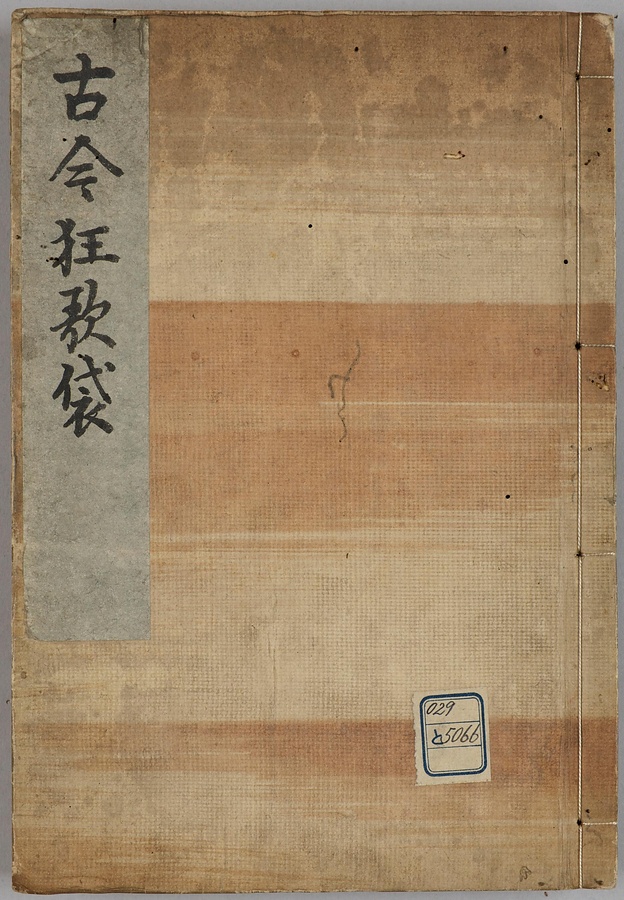 古今狂歌袋
029
と5066